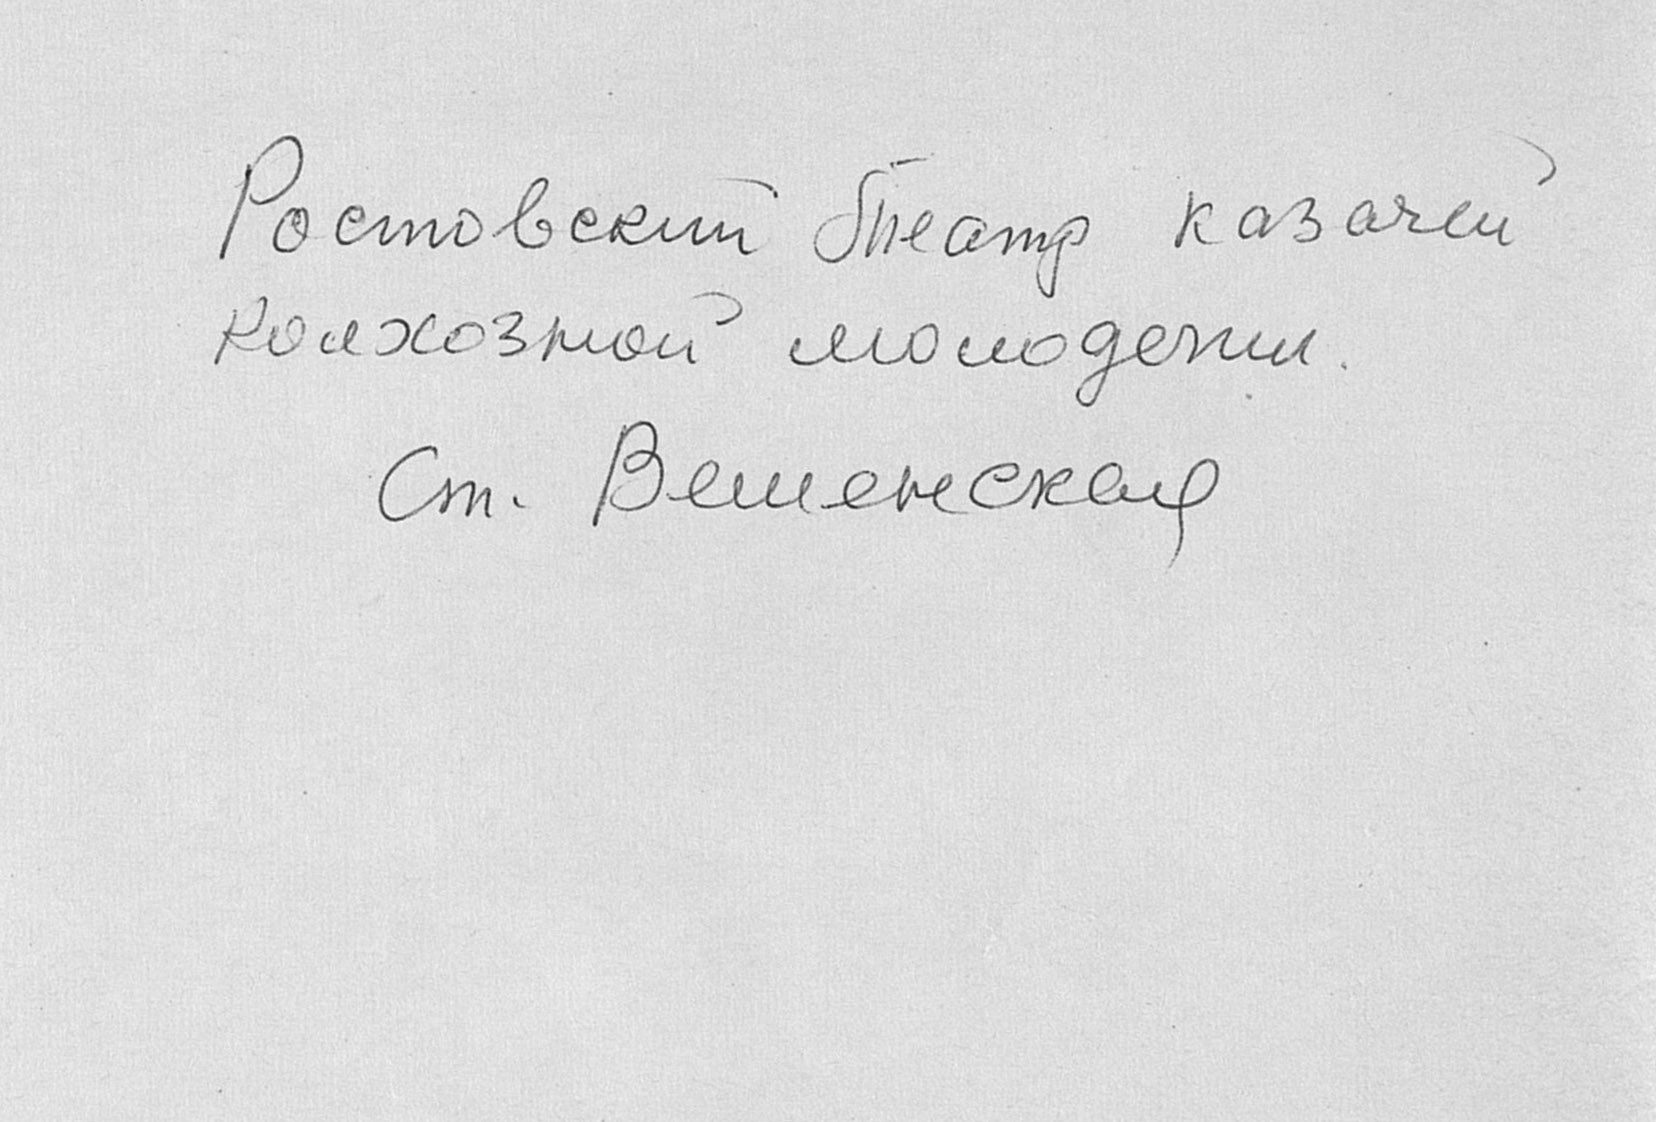 Ростовский Театр казачей
колхозной молодежи.
Ст. Вешенская